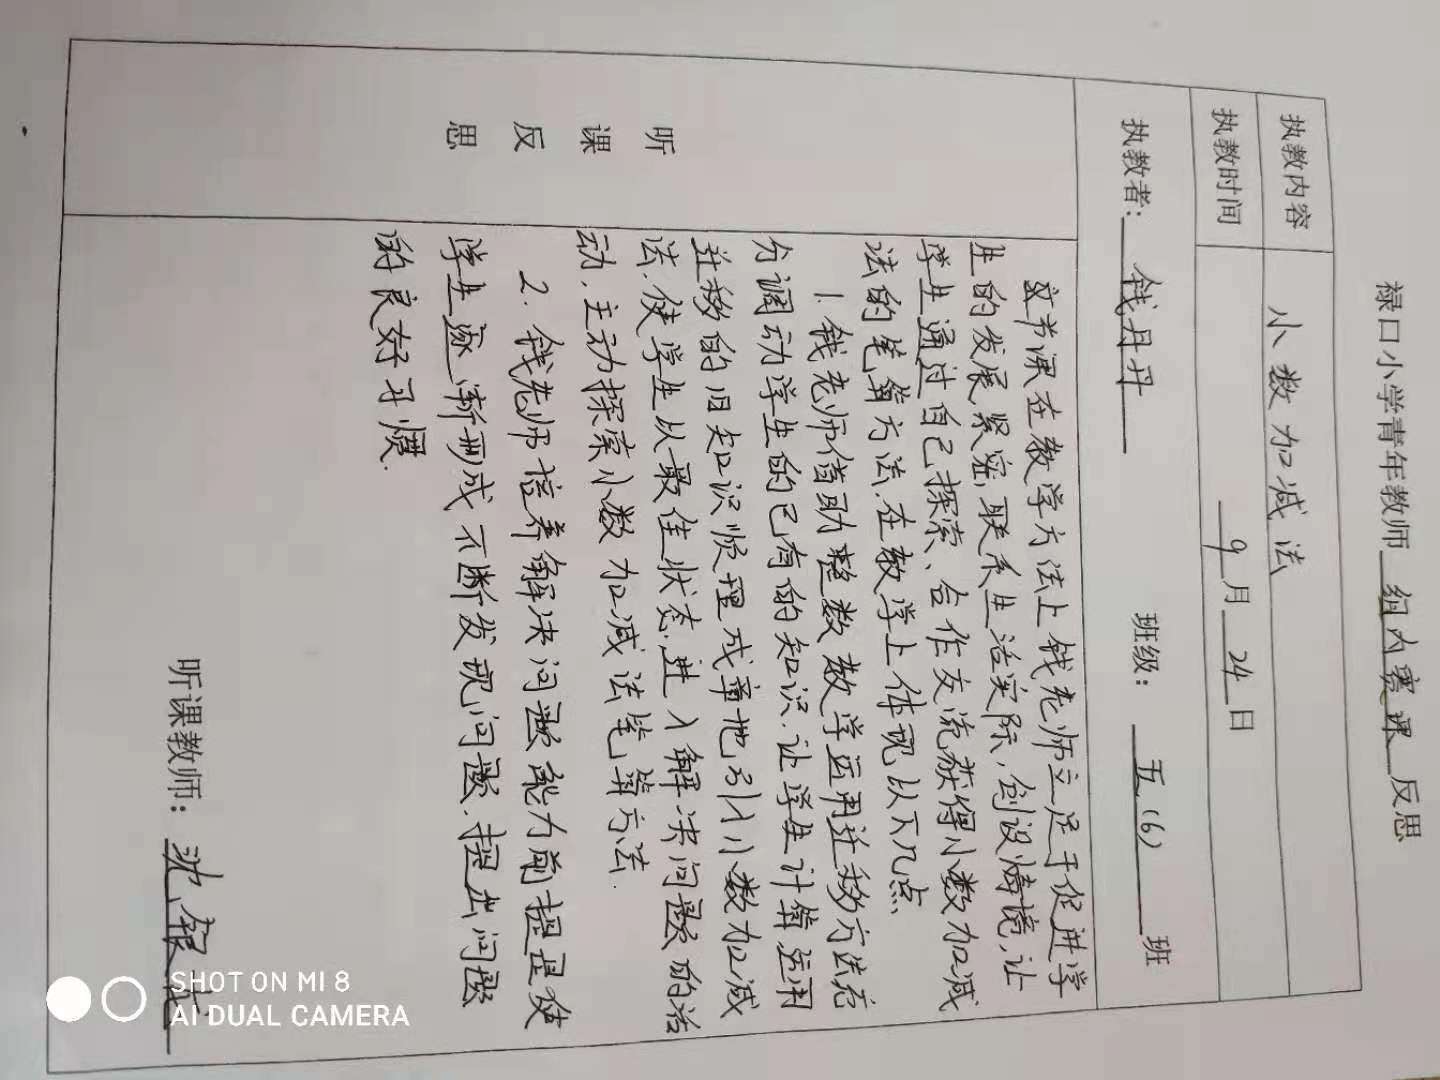 禄口小学青年教师 组内赛课 反思
执教内容 小数加减法
执教时间 9月24日
执教者: 钱丹丹 班级: 五(6) 班
听课反思
这节课在教学方法上钱老师立足于促进学
生的发展,紧密联系生活实际,创设情境,让
学生通过自己探索、合作交流获得小数加减
法的笔算方法.在教学上体现以下几点
1.钱老师借助整数教学运用迁移方法充
分调动学生的已有的知识.让学生计算运用
迁移的旧知识顺理成章地引小数加减
法.使学生从最佳状态进入解决问题的活
动.主动探索小数加减法笔算方法.
2.钱老师培养解决问题能力前提是使
学生逐渐形成不断发现问题.提出问题
的良好习惯.
听课教师: 沈银
SHOT ON MI 8
AI DUAL CAMERA